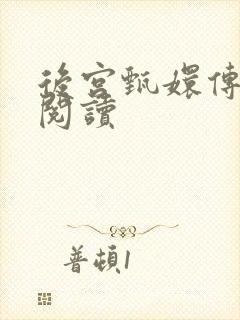 後宮甄嬛傳
閱讀
普頓1